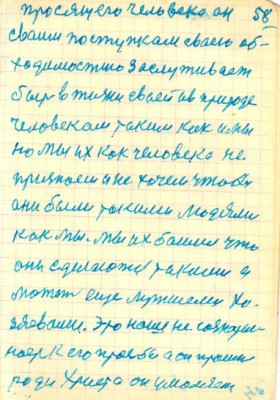 просящего человека он 58
своим поступкам своею об-
ходимостию заслуживает
быт в жизни своей и в природе
человекам таким как и мы
но мы их как человека не
признаем и не хочем чтобы
они были такими людями
как мы. мы их боимся что
они сделаются такими а
может еще лучшеми хо-
зяевами. Это наше не
к его прозьбы а он просит
ради Христа он умоляет